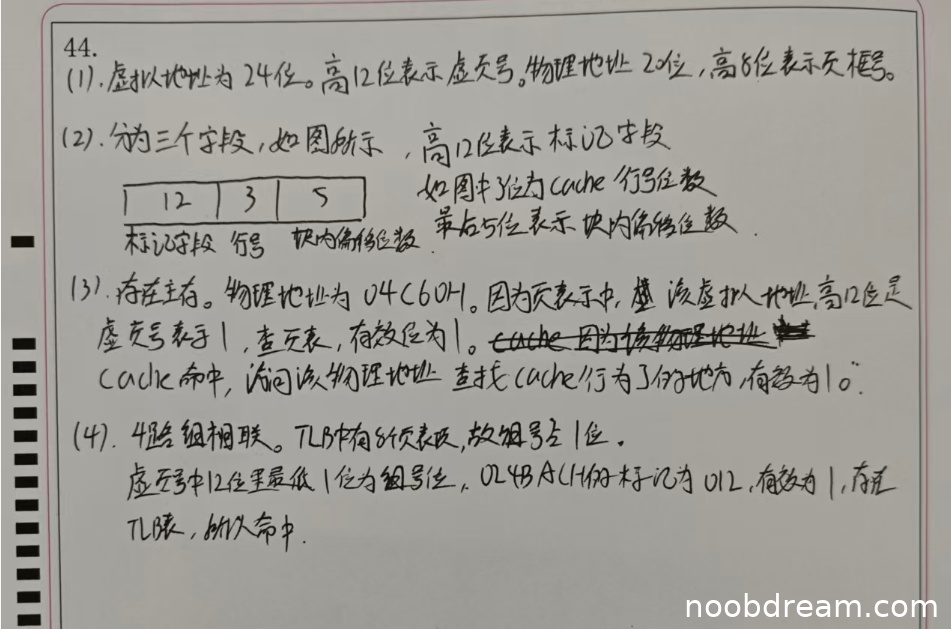 44.
(1). 虚拟地址为24位。高12位表示虚页号。物理地址20位,高8位表示页框号。
(2). 分为三个字段,如图所示,高12位表示标记字段
如图中3位为cache行号位数
12 3 5
最后5位表示块内偏移位数.
标记字段 行号 块内偏移位数.
(3). 存在主存。物理地址为04C60H。因为页表示中, 该虚拟地址高12位是
虚页号表示1,查页表,有效位为1。
cache命中,访问该物理地址 查找cache行为3的地方,有效为1。
(4). 4路组相联。TLB中有8个页表项,故组号占1位。
虚页号中12位里最低1位为组号位,024BACH的标记为012,有效为1,存在
TLB表,所以命中.
noobdream.com